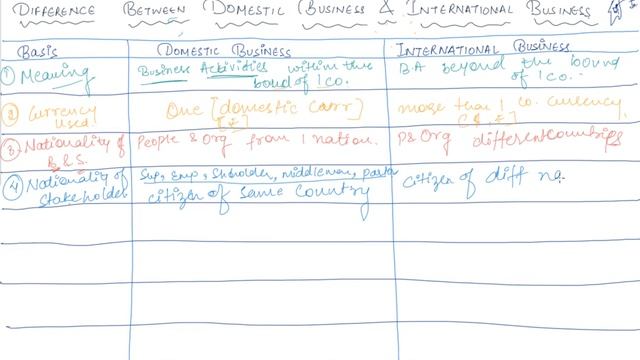 DIFFERENCE BETWEEN DOMESTIC BUSINESS & INTERNATIONAL BUSINESS
BASIS DOMESTIC BUSINESS INTERNATIONAL BUSINESS
① Meaning Business Activities within the B.A beyond the bound
bound of 1 co. of 1 co.
② Currency One [domestic Curr] more than 1 co. currency
used! [₹]
③ Nationality of People & Org from 1 nation. P& Org different countries
B & S.
④ Nationality of Sup, Emp, Shholder, middleman, partn citizen of diff na
stakeholder citizen of same country